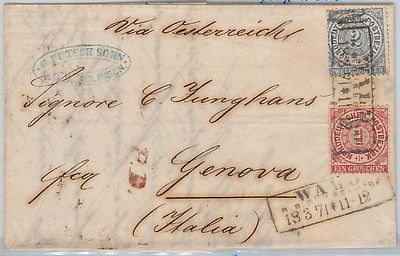 Via Oesterreich
DEUTSCH SOHN
Signore C. Junghans
fco
Genova
(Italia)
P.D.
NORDDEUTSCHER POSTBEZIRK
2
NORDDEUTSCHER POSTBEZIRK
1
EIN GROSCHEN
18 3 71 11-12